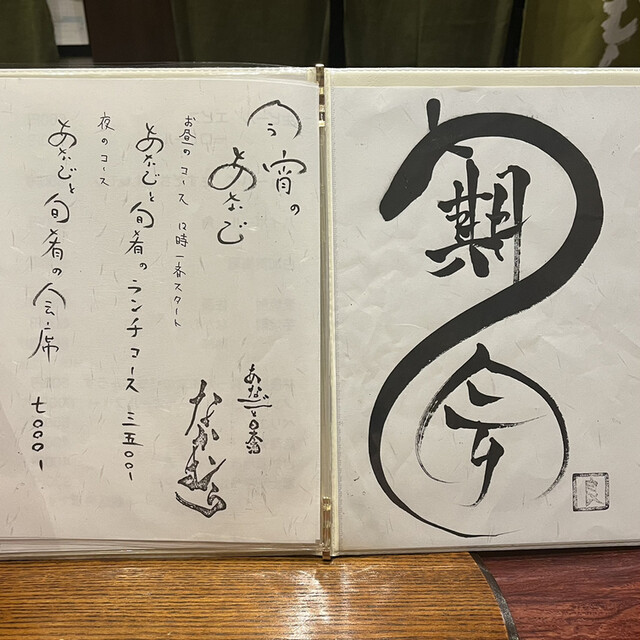 期
会
良
今宵の
あなご
お昼のコース 12時一番スタート
あなごと旬肴のランチコース 三五〇〇-
夜のコース
あなごと旬肴の会席 七〇〇〇-
なかむら